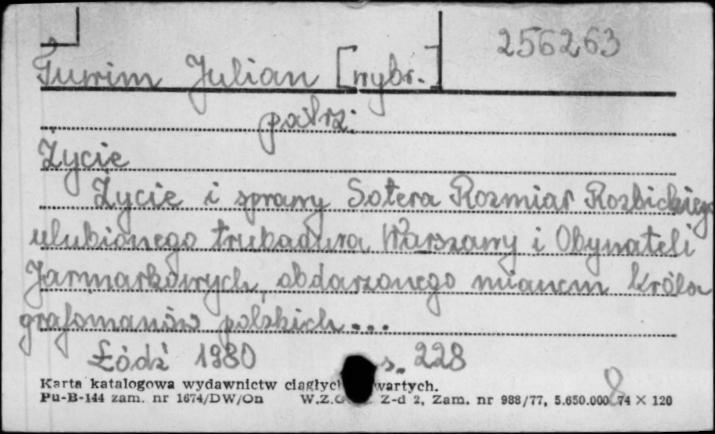 256263
Tuwim Julian [wybr.]
patrz:
Życie
Życie i sprawy Sotera Rozmiar Rozbickiego
ulubionego trubadura Warszawy i Obywateli
Jarmarkowych, obdarzonego mianem króla
grafomanów polskich...
Łódź 1980 s. 228
Karta katalogowa wydawnictw ciągłyc wartych.
Pu-B-144 zam. nr 1674/DW/On W.Z.G Z-d 2, Zam. nr 988/77, 5.650.000 74 × 120